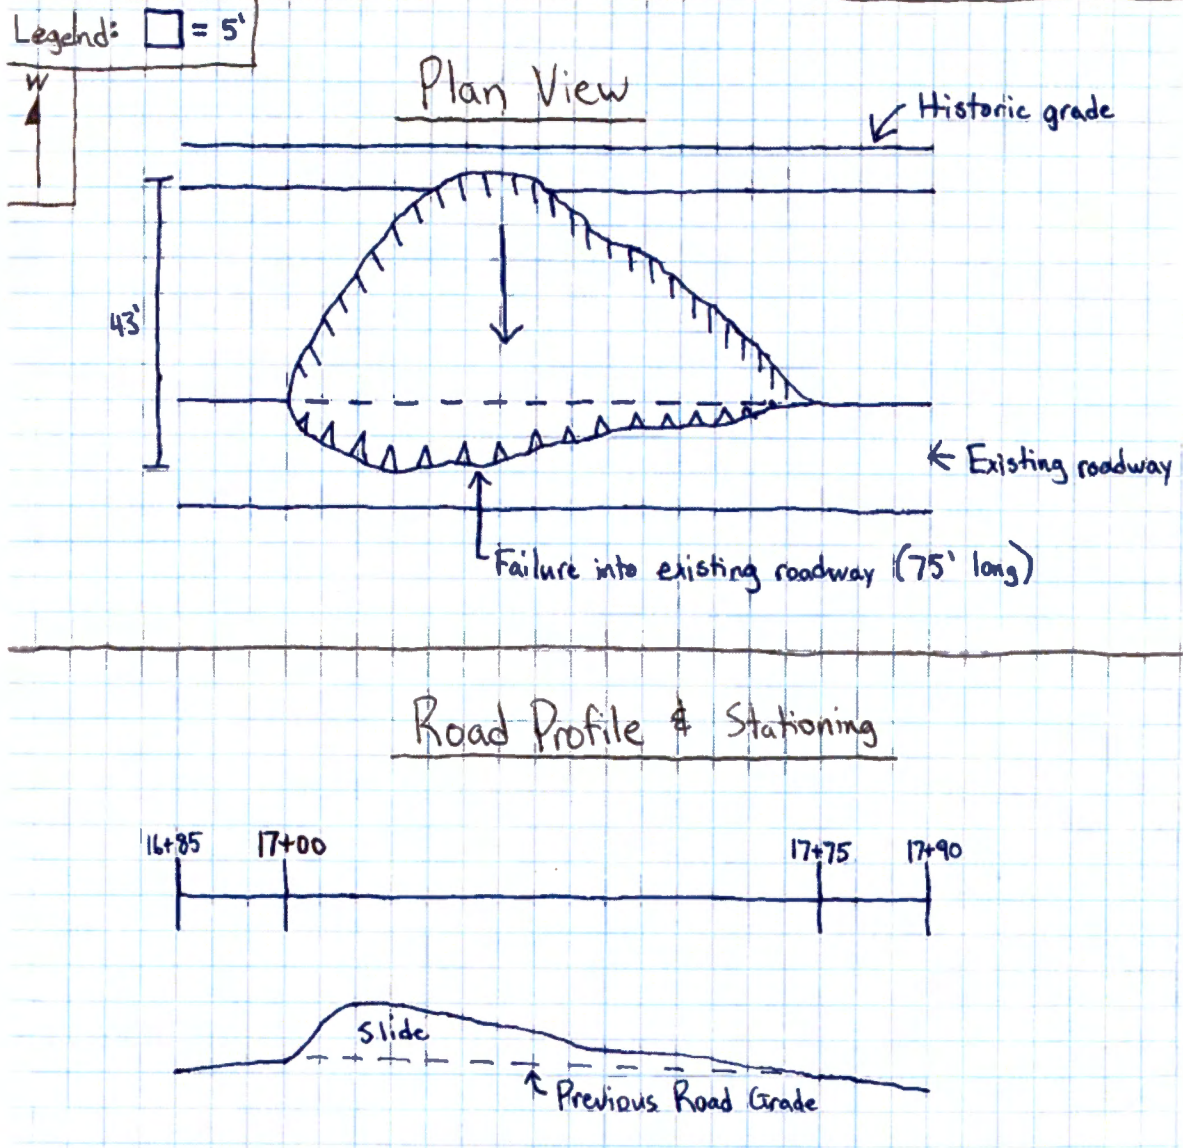 Legend: = 5'
W
Plan View
Historic grade
43'
Existing roadway
Failure into existing roadway (75' long)
Road Profile & Stationing
16+85 17+00 17+75 17+90
Slide
Previous Road Grade